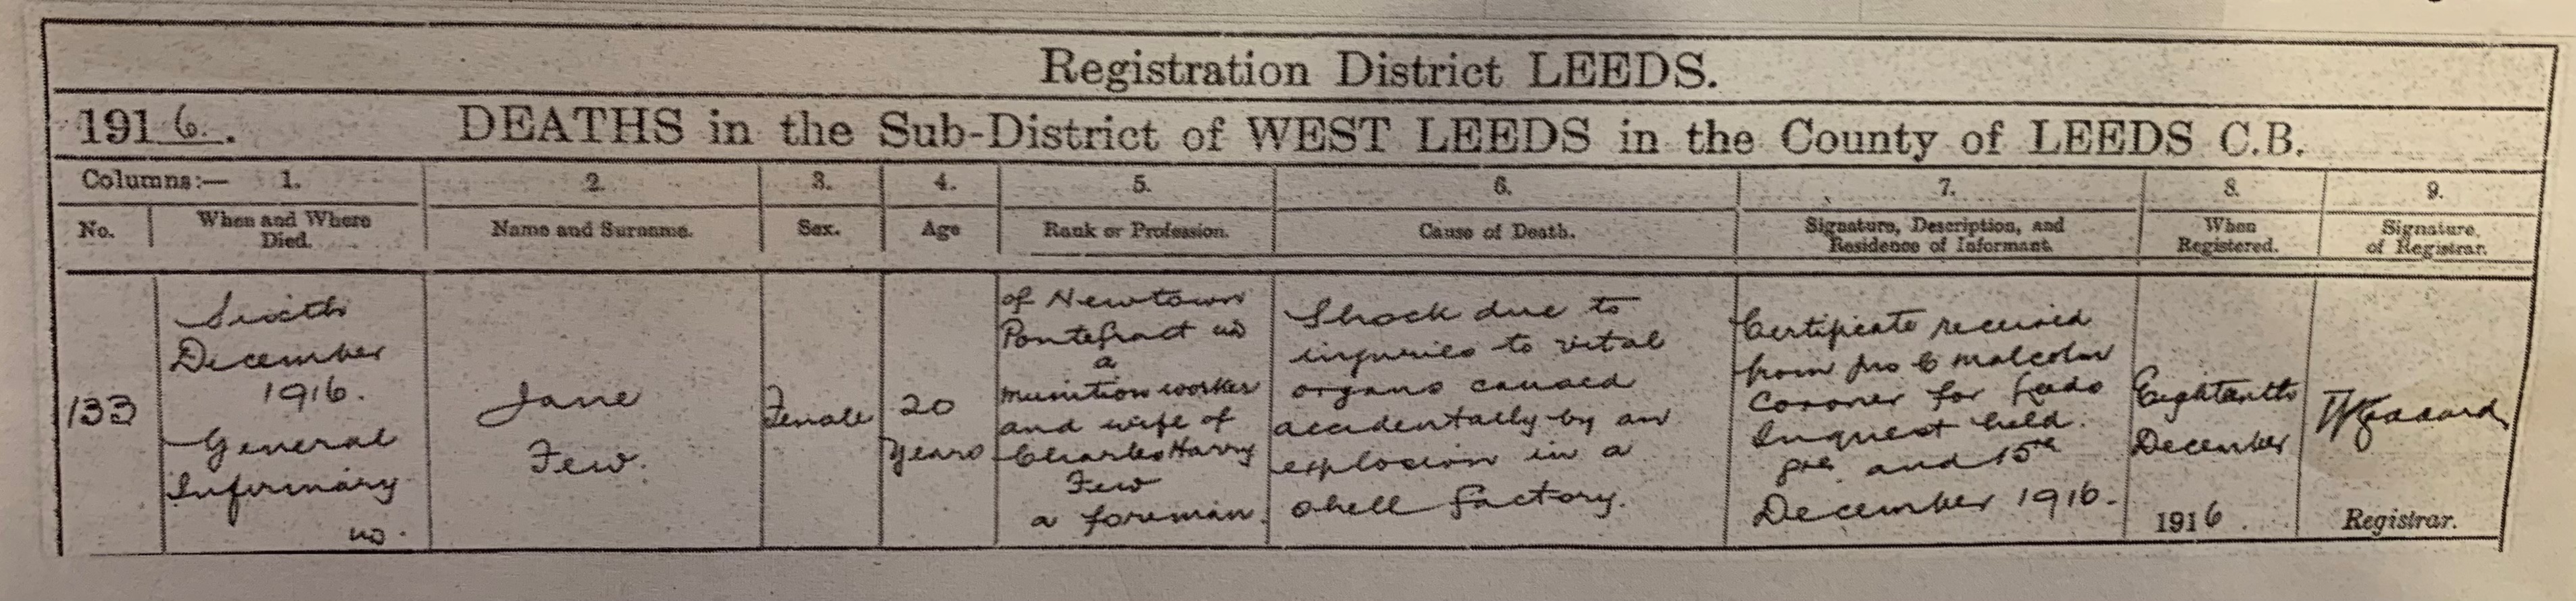 Registration District LEEDS.
1916. DEATHS in the Sub-District of WEST LEEDS in the County of LEEDS C.B.
Columns:— 1. 2. 3. 4. 5. 6. 7. 8. 9.
No.
When and Where
Died.
Name and Surname.
Sex.
Age
Rank or Profession.
Cause of Death.
Signature, Description, and
Residence of Informant.
When
Registered.
Signature
of Registrar.
133
Sixth
December
1916.
General
Infirmary
Jane
Few.
Female
20
years
of Newtown
Pontefract
a
munition worker
and wife of
Charles Harry
Few
a foreman.
Shock due to
injuries to vital
organs caused
accidentally by an
explosion in a
shell factory.
Certificate received
from Malcolm
Coroner for Leeds
Inquest held.
and 15th
December 1916.
Eighteenth
December
1916.
Registrar.